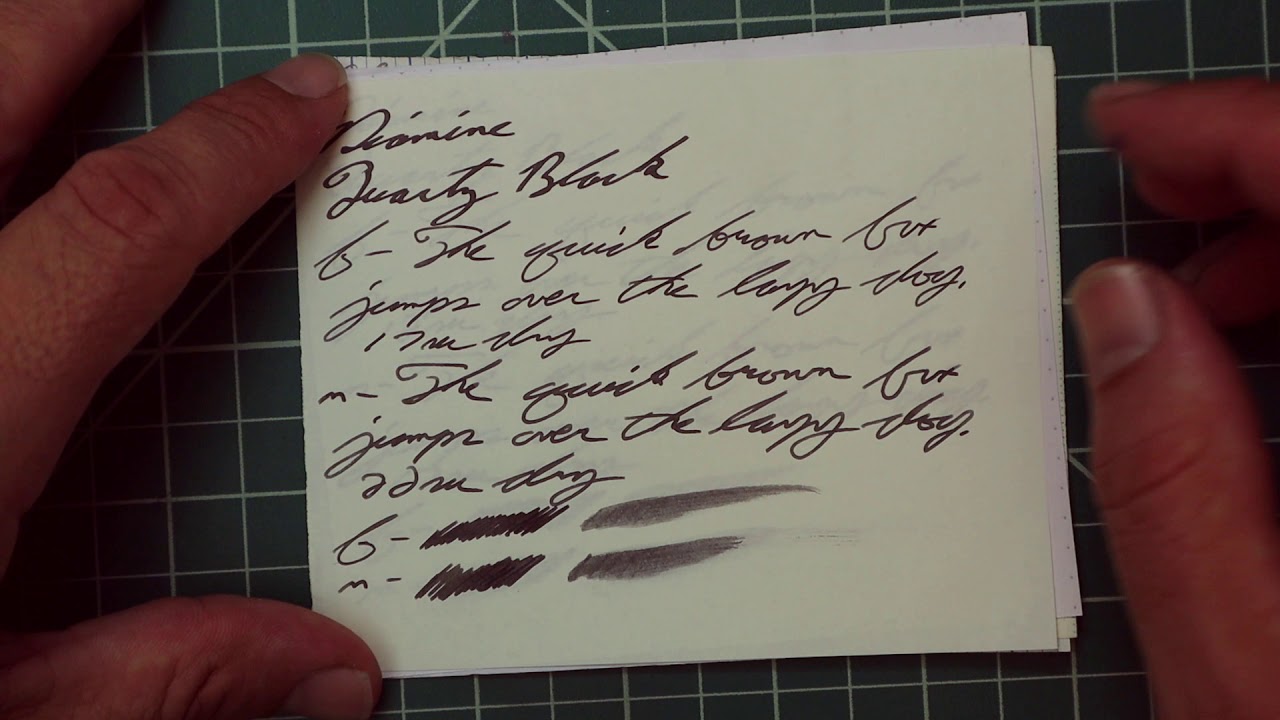 Diamine
Quartz Black
f- The quick brown fox
jumps over the lazy dog.
17sec dry
m- The quick brown fox
jumps over the lazy dog.
22sec dry
f-
m-